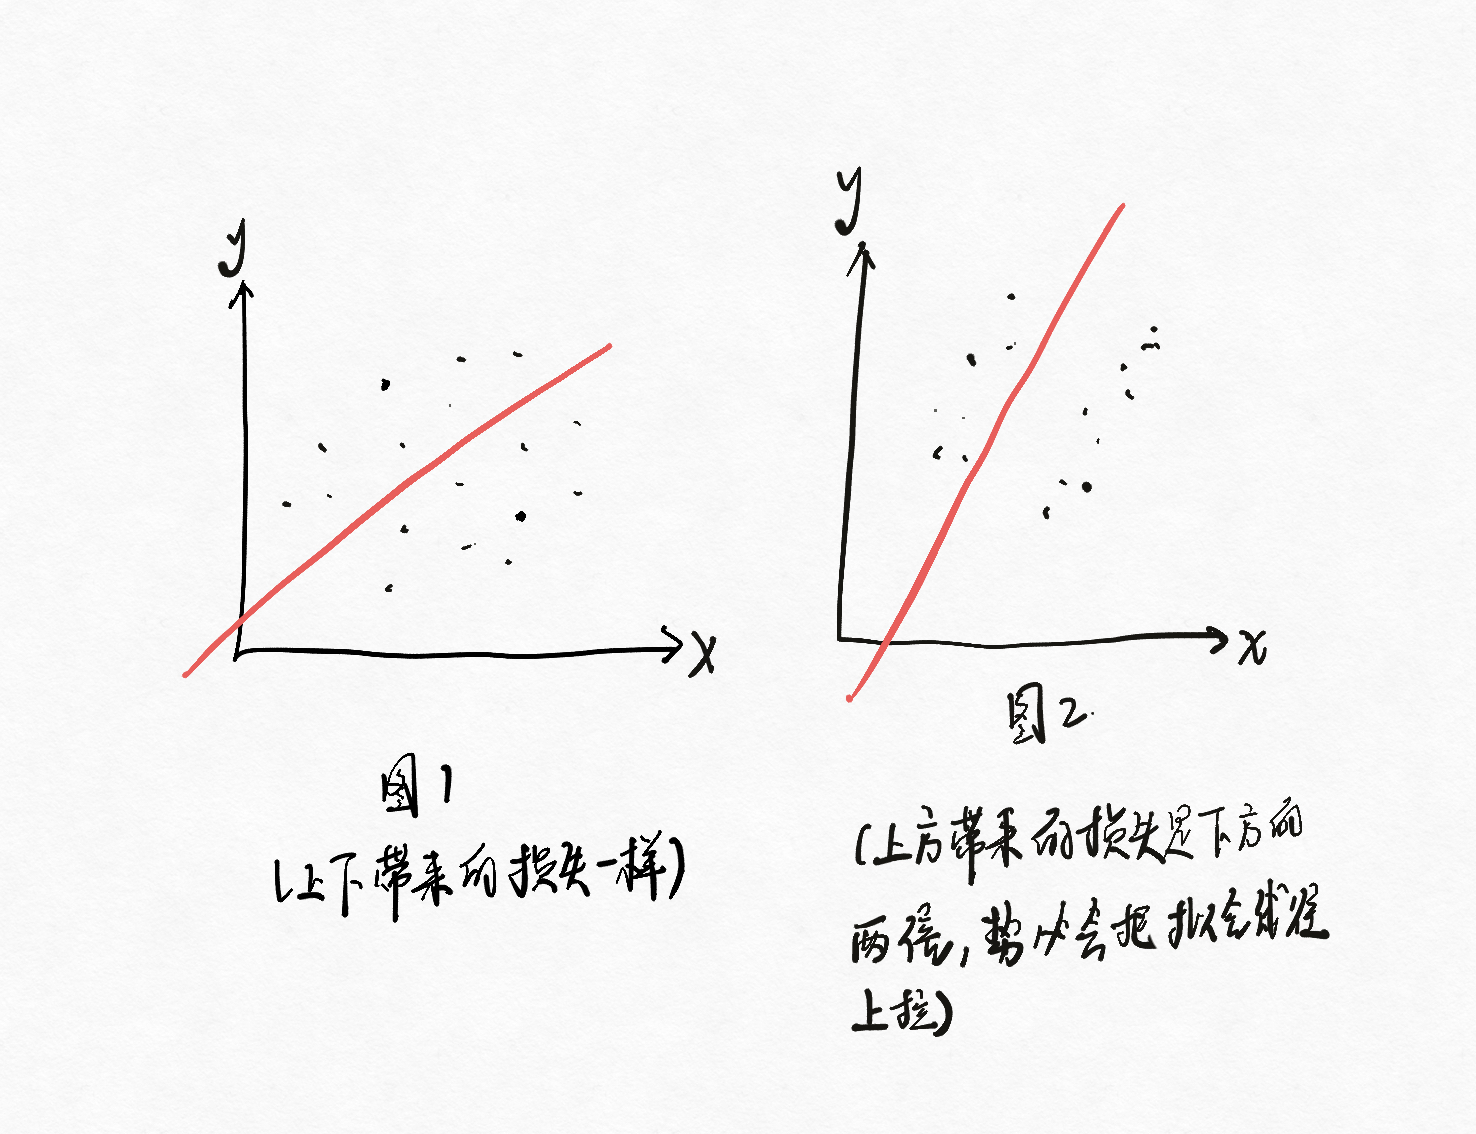 y
x
图1
(上下带来的损失一样)
y
x
图2
(上方带来的损失是下方的
两倍,势必会把拟合线往
上拉)